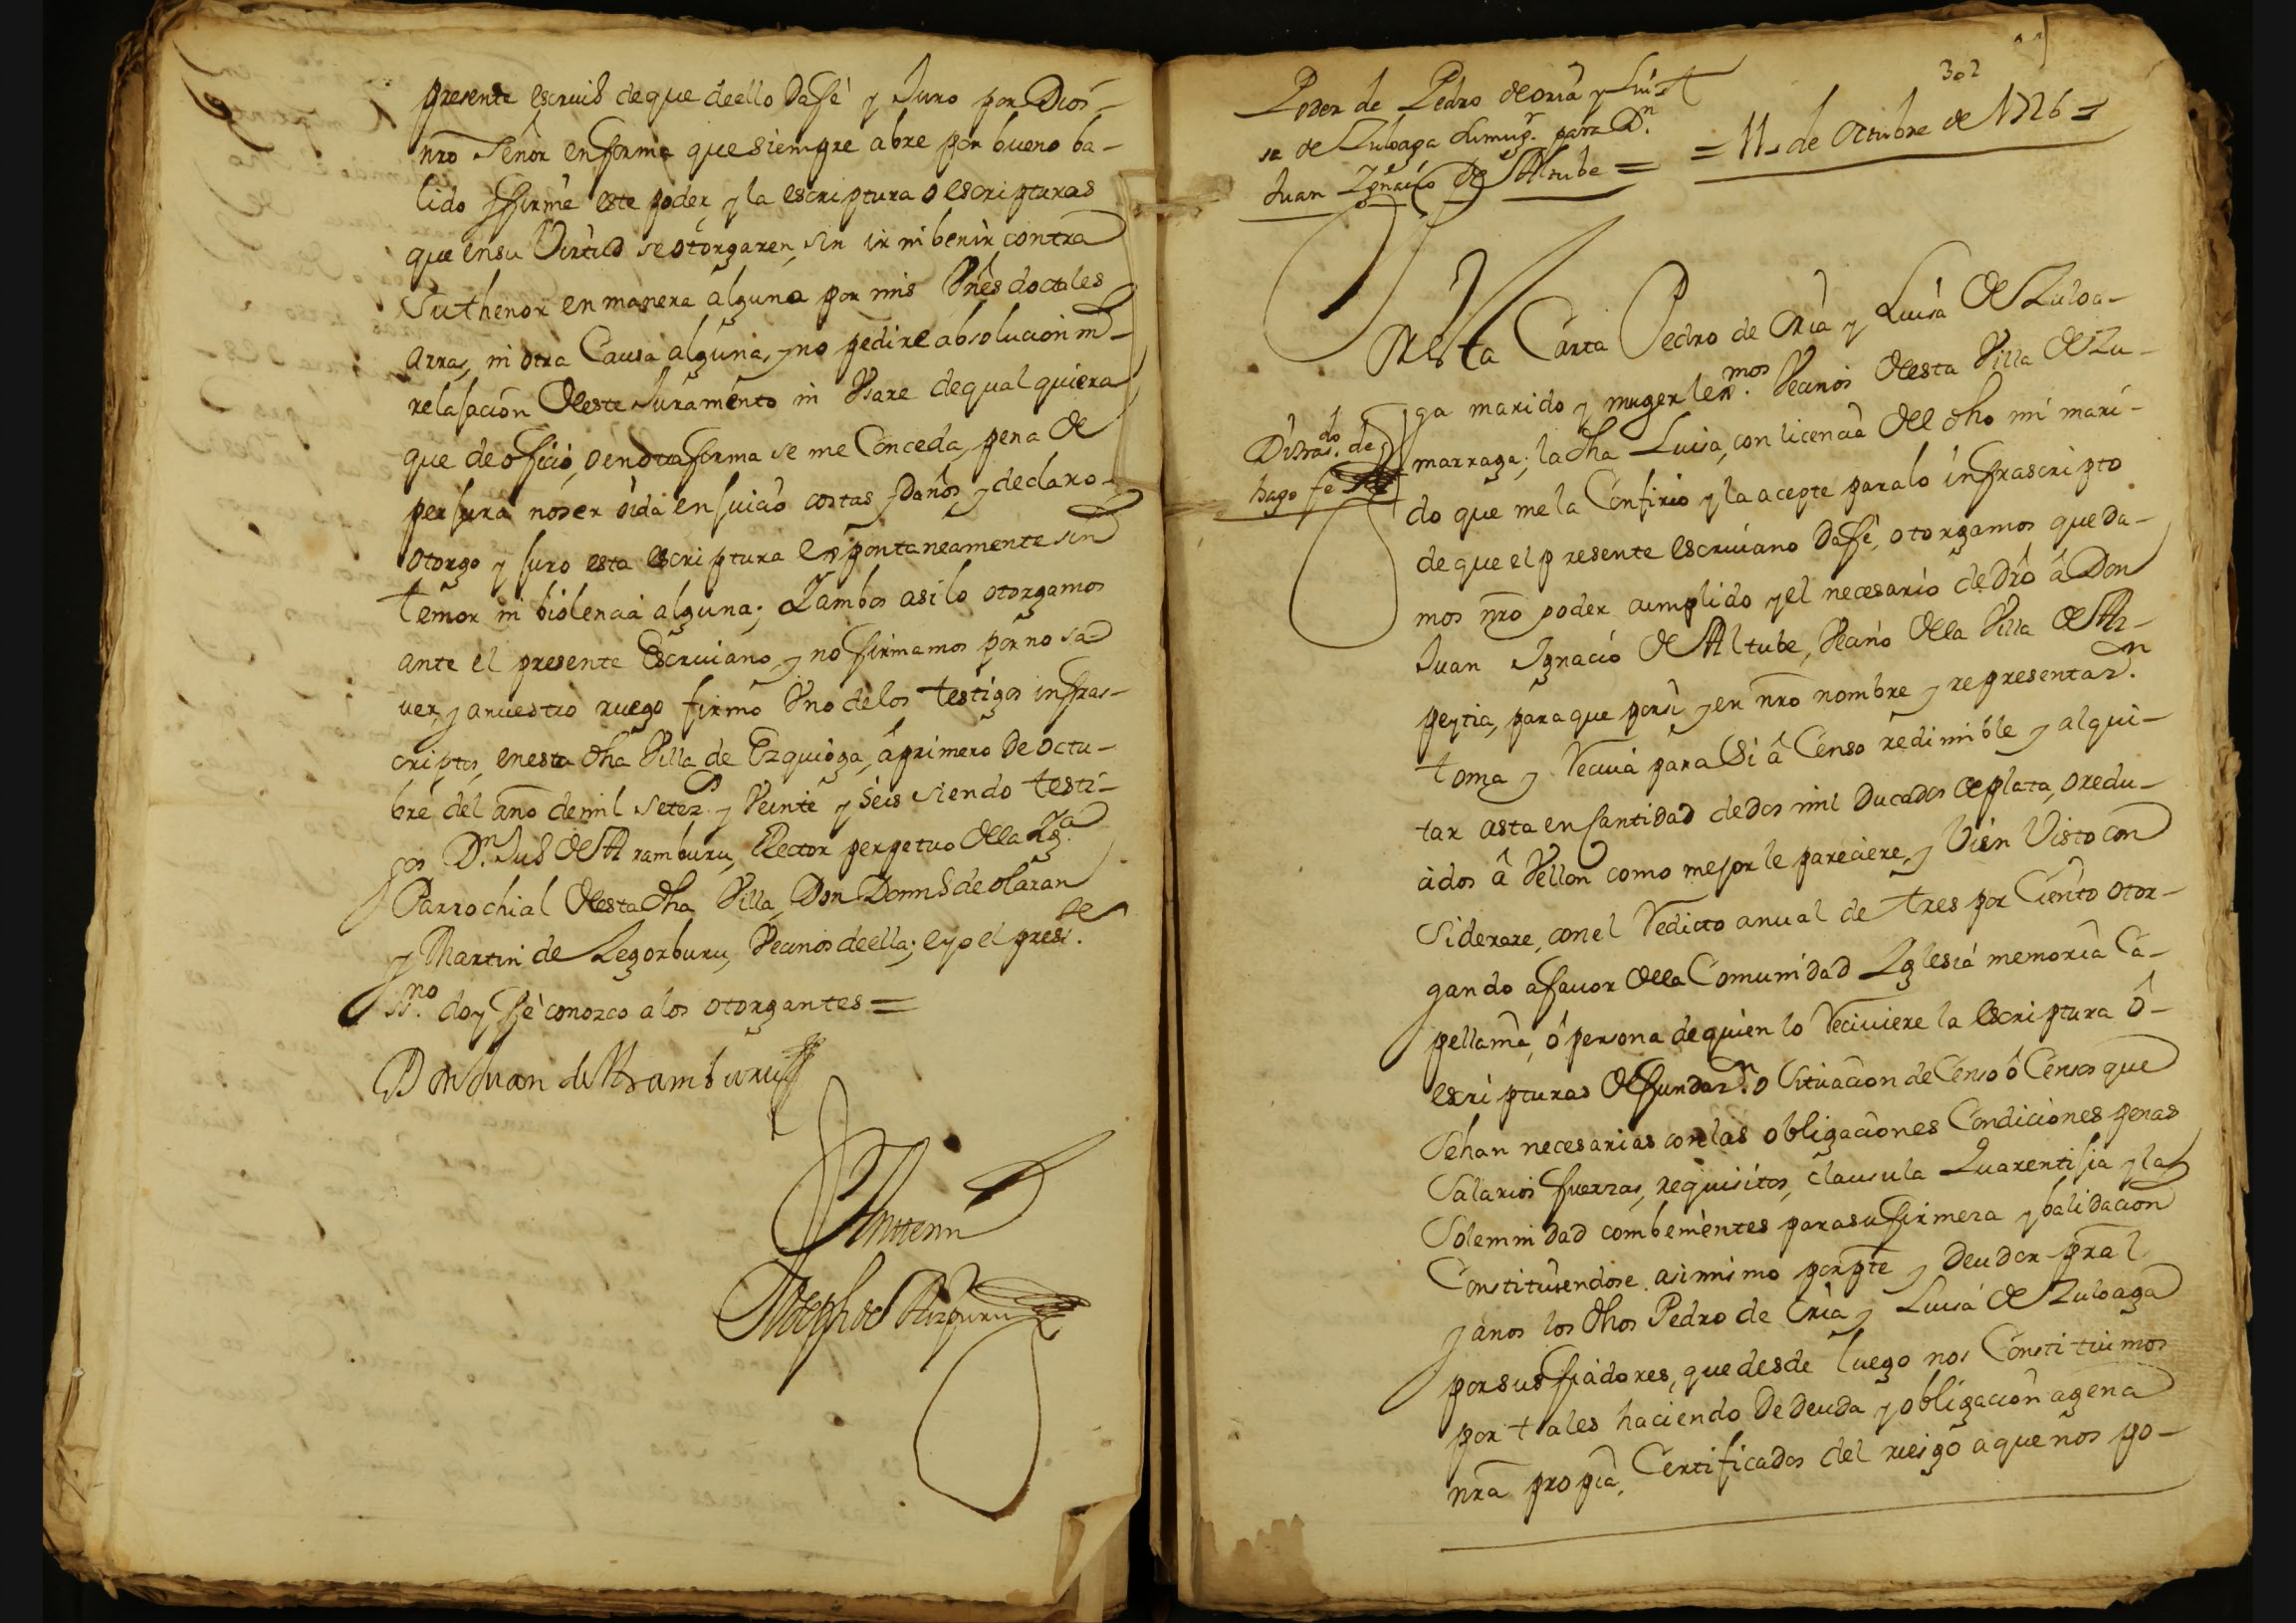 presente escriuº de que de ello da fe y Juro por Dios
nro Señor en forma que siempre abre por bueno ba-
lido y firme este poder y la escriptura o escripturas
que en su Virtud se otorgaren, sin ir ni benir contra
Su thenor en manera alguna por mis Vnes doctales
arras, ni otra Causa alguna, y no pedire absolucion ni
relajacion de este Juramento ni Vsare de qual quiera
que de oficio, o en otra forma se me Conceda, pena de
perjura no ser oida en juicio costas y Daños, y declaro
otorgo y juro esta escriptura espontaneamente sin
temor ni biolencia alguna; Y ambos asi lo otorgamos
ante el presente Escriuano, y no firmamos por no sa
uer, y a nuestro ruego firmo Vno de los testigos infras-
criptos, en esta dha Villa de Ezquioga, â primero de octu-
bre del año de mil setez.s y Veinte y seis siendo testi-
gos Dn. Juº de Aramburu, Rector perpetuo de la Yg.a
Parrochial de esta dha Villa, Don Domº de olaran
y Martin de Legorburu, Vecinos de ella; e yo el presi.te
ss.no doy fe conozco a los otorgantes =
Don Juan de Aramburu
Ante mi
Joseph de Aizpuru
302
Poder de Pedro de oria y Luí-
sa de Zuloaga su mug.r para Dn.
Juan Ygnacio de Altube =
= 11, de octubre de 1726 =
En esta Carta Pedro de Oria y Luisa de Zuloa-
ga marido y muger lexmos. Vecinos de esta Villa de Zu-
marraga; la dha Luisa, con licencia del dho mi mari-
do que me la Confirio y la acepte para lo infrascripto
de que el presente escriuano da fe, otorgamos, que da-
mos nro poder cumplido y el necesario de dro â Don
Juan Ygnacio de Altube, Vecino de la Villa de Az-
peytia, para que por si y en nro nombre y representaz.n
toma y Reciua para Si â Censo redimible y al qui-
tar asta en Cantidad de dos mil Ducados de plata, o redu-
cidos â Vellon como mejor le pareciere, y Vien Visto con
Siderare, con el Redicto anual de tres por Ciento otor-
gando a fauor de la Comunidad Yglesia memoria Ca-
pellania, ô persona de quien lo Reciuiere la escriptura ô
escripturas de fundaz.n o Situacion de Censo ô Censos que
Sehan necesarias con las obligaciones Condiciones penas
Salarios fuerzas, requisitos, clausula Quarentijia y la
Solemnidad combenientes para su firmeza y balidacion
Constituiendose asimismo por pte y Deudor pral
y a nos los dhos Pedro de Oria y Luisa de Zuloaga
por sus fiadores, que desde luego nos Constituimos
por tales haciendo de deuda y obligacion agena
nra propia, Certificados del riesgo a que nos po-
Disras.do de
hago fe